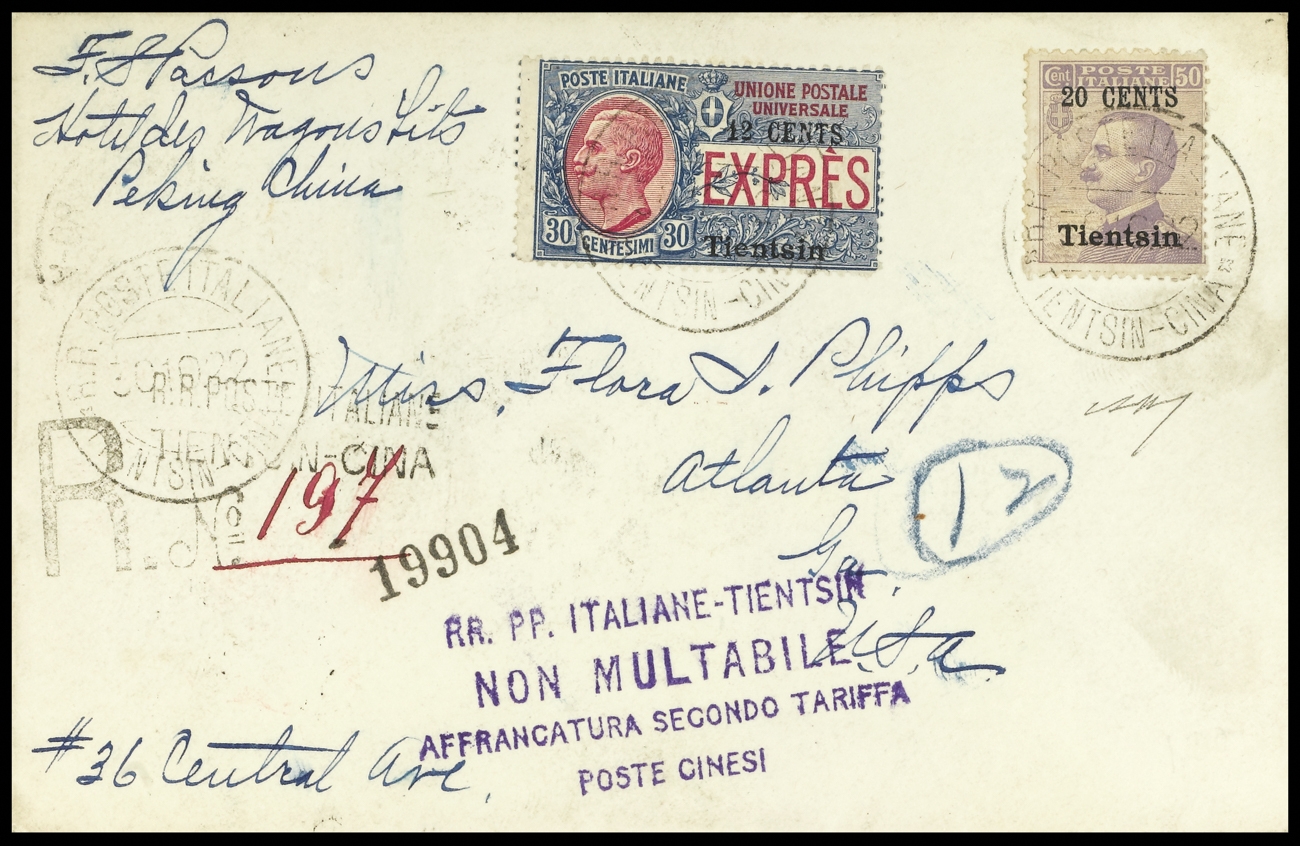 F. S Parsons
Hotel des Wagons Lits
Peking China
POSTE ITALIANE
UNIONE POSTALE
UNIVERSALE
12 CENTS
EXPRÈS
30 CENTESIMI 30
Tientsin
TIENTSIN-CINA
Cent POSTE ITALIANE 50
20 CENTS
Tientsin
RR. POSTE ITALIANE
TIENTSIN-CINA
R.R. POSTE ITALIANE
TIENTSIN
R.R. POSTE ITALIANE
TIENTSIN-CINA
R. No
197
19904
Miss, Flora I. Phipps
Atlanta
Ga.
U.S.a
12
RR. PP. ITALIANE-TIENTSIN
NON MULTABILE
AFFRANCATURA SECONDO TARIFFA
POSTE CINESI
#36 Central Ave,